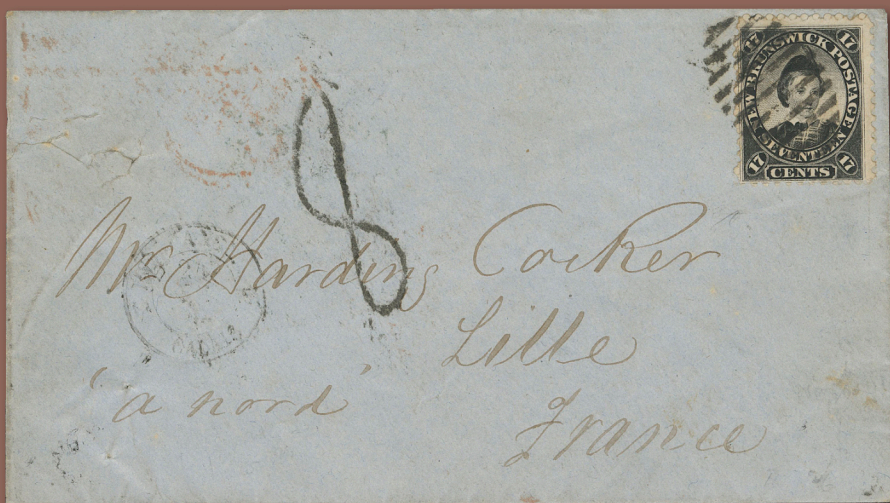 17 NEW BRUNSWICK POSTAGE 17
17 SEVENTEEN 17
CENTS
8
Mr Harding Cocker
Lille
"a nord"
France